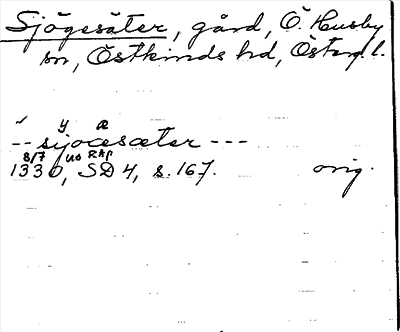 Sjögesäter, gård, Ö. Husby
sn, Östkinds hd, Östergl.
y æ
-- sijoæsæter ---
8/7 uo RAp
1330, SD 4, s. 167. orig.